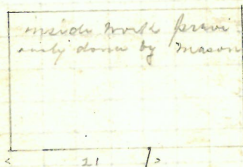 inside work previ
ously done by mason
21